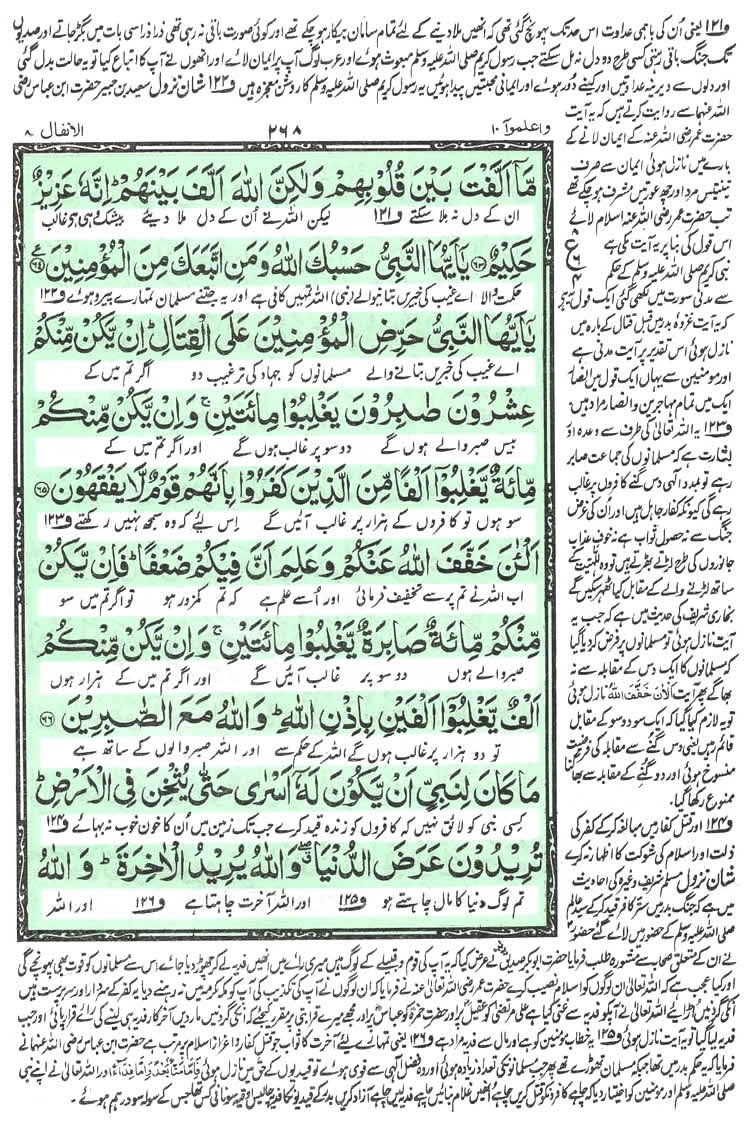 و۱۲۱ یعنی اُن کی باہمی عداوت اس حد تک پہونچ گئی تھی کہ انھیں ملا دینے کے لئے تمام سامان بیکار ہو چکے تھے اور کوئی صورت باقی نہ رہی تھی ذرا ذرا سی بات میں بگڑ جاتے اور صدیوں
تک جنگ باقی رہتی کسی طرح دو دل نہ مل سکتے جب رسول کریم صلی اللہ علیہ وسلم مبعوث ہوئے اور عرب لوگ آپ پر ایمان لائے اور انھوں نے آپ کا اتباع کیا تو یہ حالت بدل گئی
اور دلوں سے دیرینہ عداوتیں اور کینے دُور ہوئے اور ایمانی محبتیں پیدا ہوئیں یہ رسول کریم صلی اللہ علیہ وسلم کا روشن معجزہ ہے و۱۲۲ شان نزول سعید بن جبیر حضرت ابن عباس رضی
الانفال ۸
۲۶۸
واعلموا ۱۰
مَّاۤ اَلَّفْتَ بَيْنَ قُلُوْبِهِمْ وَلٰكِنَّ اللّٰهَ اَلَّفَ بَيْنَهُمْ ؕ اِنَّهٗ عَزِيْزٌ
ان کے دل نہ ملا سکتے و۱۲۱ لیکن اللہ نے اُن کے دل ملا دیئے بیشک وہی ہی غالب
حَكِيْمٌ ۶۳ يٰۤاَيُّهَا النَّبِيُّ حَسْبُكَ اللّٰهُ وَمَنِ اتَّبَعَكَ مِنَ الْمُؤْمِنِيْنَ ۶۴
حکمت والا اے غیب کی خبریں بتانیوالے (نبی) اللہ تمہیں کافی ہے اور یہ جتنے مسلمان تمہارے پیرو ہوئے و۱۲۲
يٰۤاَيُّهَا النَّبِيُّ حَرِّضِ الْمُؤْمِنِيْنَ عَلَى الْقِتَالِ ؕ اِنْ يَّكُنْ مِّنْكُمْ
اے غیب کی خبریں بتانے والے مسلمانوں کو جہاد کی ترغیب دو اگر تم میں کے
عِشْرُوْنَ صٰبِرُوْنَ يَغْلِبُوْا مِائَتَيْنِ ۚ وَاِنْ يَّكُنْ مِّنْكُمْ
بیس صبر والے ہوں گے دو سو پر غالب ہوں گے اور اگر تم میں کے
مِّائَةٌ يَّغْلِبُوْۤا اَلْفًا مِّنَ الَّذِيْنَ كَفَرُوْا بِاَنَّهُمْ قَوْمٌ لَّا يَفْقَهُوْنَ ۶۵
سو ہوں تو کافروں کے ہزار پر غالب آئیں گے اِس لیٔے کہ وہ سمجھ نہیں رکھتے و۱۲۳
اَلْـٰٔنَ خَفَّفَ اللّٰهُ عَنْكُمْ وَعَلِمَ اَنَّ فِيْكُمْ ضَعْفًا ؕ فَاِنْ يَّكُنْ
اب اللہ نے تم پر سے تخفیف فرمائی اور اُسے علم ہے کہ تم کمزور ہو تو اگر تم میں سو
مِّنْكُمْ مِّائَةٌ صَابِرَةٌ يَّغْلِبُوْا مِائَتَيْنِ ۚ وَاِنْ يَّكُنْ مِّنْكُمْ
صبر والے ہوں دو سو پر غالب آئیں گے اور اگر تم میں کے ہزار ہوں
اَلْفٌ يَّغْلِبُوْۤا اَلْفَيْنِ بِاِذْنِ اللّٰهِ ؕ وَاللّٰهُ مَعَ الصّٰبِرِيْنَ ۶۶
تو دو ہزار پر غالب ہوں گے اللہ کے حکم سے اور اللہ صبر والوں کے ساتھ ہے
مَا كَانَ لِنَبِيٍّ اَنْ يَّكُوْنَ لَهٗۤ اَسْرٰى حَتّٰى يُثْخِنَ فِى الْاَرْضِ ؕ
کسی نبی کو لائق نہیں کہ کافروں کو زندہ قید کرے جب تک زمین میں اُن کا خون خوب نہ بہائے و۱۲۴
تُرِيْدُوْنَ عَرَضَ الدُّنْيَا ۖ وَاللّٰهُ يُرِيْدُ الْاٰخِرَةَ ؕ وَاللّٰهُ
تم لوگ دنیا کا مال چاہتے ہو و۱۲۵ اور اللہ آخرت چاہتا ہے و۱۲۶ اور اللہ
اللہ عنہما سے روایت کرتے ہیں کہ یہ آیت
حضرت عمر رضی اللہ عنہ کے ایمان لانے کے
بارے میں نازل ہوئی ایمان سے صرف
تینتیس مرد اور چھ عورتیں مشرف ہو چکے تھے
تب حضرت عمر رضی اللہ عنہ اسلام لائے
اس قول کی بنا پر یہ آیت مکی ہے
نبی کریم صلی اللہ علیہ وسلم کے حکم
سے مدنی سورت میں لکھی گئی ایک قول یہ ہے
کہ یہ آیت غزوہ بدر میں قبل قتال کے بارہ میں
نازل ہوئی اس تقدیر پر آیت مدنی ہے
اور مومنین سے یہاں ایک قول میں انصار
ایک میں تمام مہاجرین و انصار مراد ہیں
و۱۲۳ یہ اللہ تعالیٰ کی طرف سے وعدہ اور
بشارت ہے کہ مسلمانوں کی جماعت صابر
رہے تو بمدد الٰہی دس گنے کافروں پر غالب
رہے گی کیونکہ کفار جاہل ہیں اور اُن کی غرض
جنگ سے نہ حصول ثواب ہے نہ خوف عذاب
جانوروں کی طرح لڑتے بھڑتے ہیں تو وہ للہیت کے
ساتھ لڑنے والے کے مقابل کیا ٹھہر سکیں گے
بخاری شریف کی حدیث میں ہے کہ جب یہ
آیت نازل ہوئی تو مسلمانوں پر فرض کر دیا گیا
کہ مسلمانوں کا ایک دس کے مقابلہ سے نہ
بھاگے پھر آیت اَلْاٰنَ خَفَّفَ اللّٰهُ نازل ہوئی
تو یہ لازم کیا گیا کہ ایک سو دو سو کے مقابل
قائم رہیں یعنی دس گنے سے مقابلہ کی فرضیت
منسوخ ہوئی اور دو گنے کے مقابلہ سے بھاگنا
ممنوع رکھا گیا.
و۱۲۴ اور قتل کفار میں مبالغہ کر کے کفر کی
ذلت اور اسلام کی شوکت کا اظہار نہ کرے
شان نزول مسلم شریف وغیرہ کی احادیث
میں ہے کہ جنگ بدر میں ستر کافر قید کر کے سید عالم
صلی اللہ علیہ وسلم کے حضور میں لائے گئے حضور
نے ان کے متعلق صحابہ سے مشورہ طلب فرمایا حضرت ابوبکر صدیق نے عرض کیا کہ یہ آپ کی قوم و قبیلے کے لوگ ہیں میری رائے میں انھیں فدیہ لے کر چھوڑ دیا جائے اس سے مسلمانوں کو قوت بھی پہونچے گی
اور کیا عجب ہے کہ اللہ تعالیٰ ان لوگوں کو اسلام نصیب کرے حضرت عمر رضی اللہ تعالیٰ عنہ نے فرمایا کہ ان لوگوں نے آپ کی تکذیب کی آپ کو مکہ مکرمہ میں نہ رہنے دیا یہ کفر کے سردار اور سرپرست ہیں
انکی گردنیں اڑائیے اللہ تعالیٰ نے آپکو فدیہ سے غنی کیا ہے علی مرتضیٰ کو عقیل پر اور حضرت حمزہ کو عباس پر اور مجھے میرے قرابتی پر مقرر کیجئے کہ انکی گردنیں مار دیں آخر کار فدیہ ہی لینے کی رائے قرار پائی اور جب
فدیہ لیا گیا تو یہ آیت نازل ہوئی و۱۲۵ یہ خطاب مؤمنین کو ہے اور مال سے فدیہ مراد ہے و۱۲۶ یعنی تمہارے لئے آخرت کا ثواب جو قتل کفار و اعزاز اسلام پر مرتب ہے حضرت ابن عباس رضی اللہ عنہما نے
فرمایا کہ یہ حکم بدر میں تھا جبکہ مسلمان تھوڑے تھے پھر جب مسلمانوں کی تعداد زیادہ ہوئی اور وہ فضل الٰہی سے قوی ہوئے تو قیدیوں کے حق میں نازل ہوئی فَاِمَّا مَنًّۢا بَعْدُ وَاِمَّا فِدَآءً اور اللہ تعالیٰ نے اپنے نبی
صلی اللہ علیہ وسلم اور مومنین کو اختیار دیا کہ چاہے کافروں کو قتل کریں چاہے اُنھیں غلام بنائیں چاہے فدیہ لیں چاہے آزاد کریں بدر کے قیدیوں کا فدیہ چالیس اوقیہ سونا فی کس تھا جس کے سولہ سو درہم ہوئے.